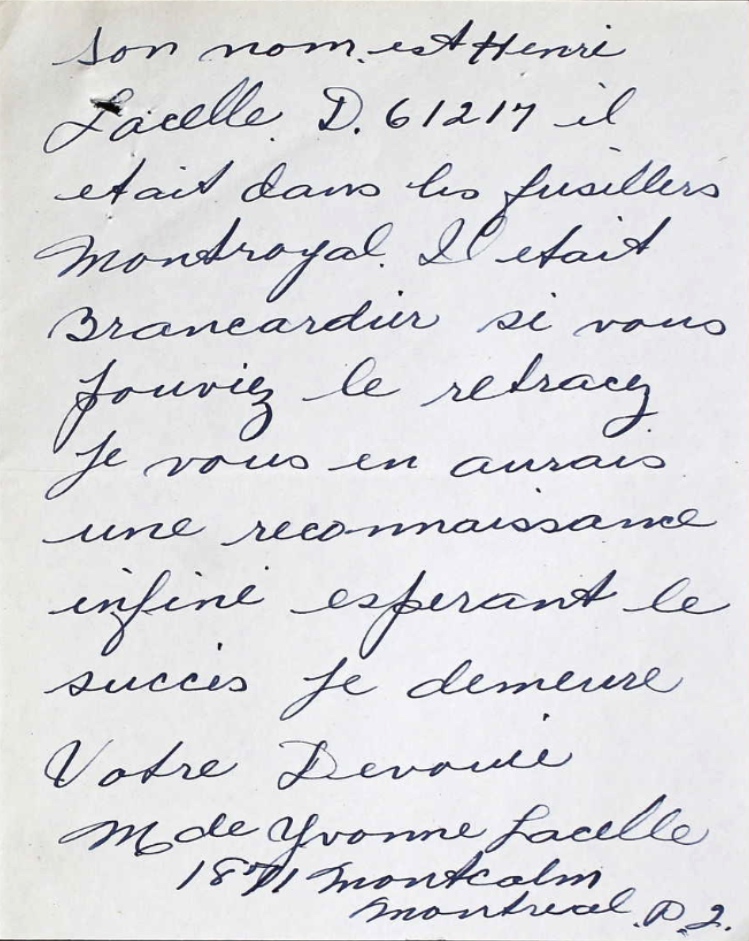 son nom est Henri
Lacelle D. 61217 il
etait dans les fusillers
Montroyal. Il etait
Brancardier si vous
pouviez le retracez
je vous en aurais
une reconnaissance
infini esperant le
succès je demeure
Votre Devouée
Mde Yvonne Lacelle
1871 Montcalm
Montreal. P.2.